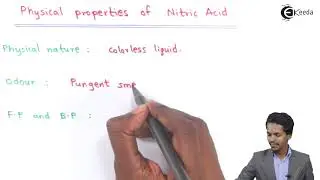 Physical properties of Nitric Acid
Ekeeda
Physical nature : colorless liquid.
Odour : Pungent sme
F.P and B.P :